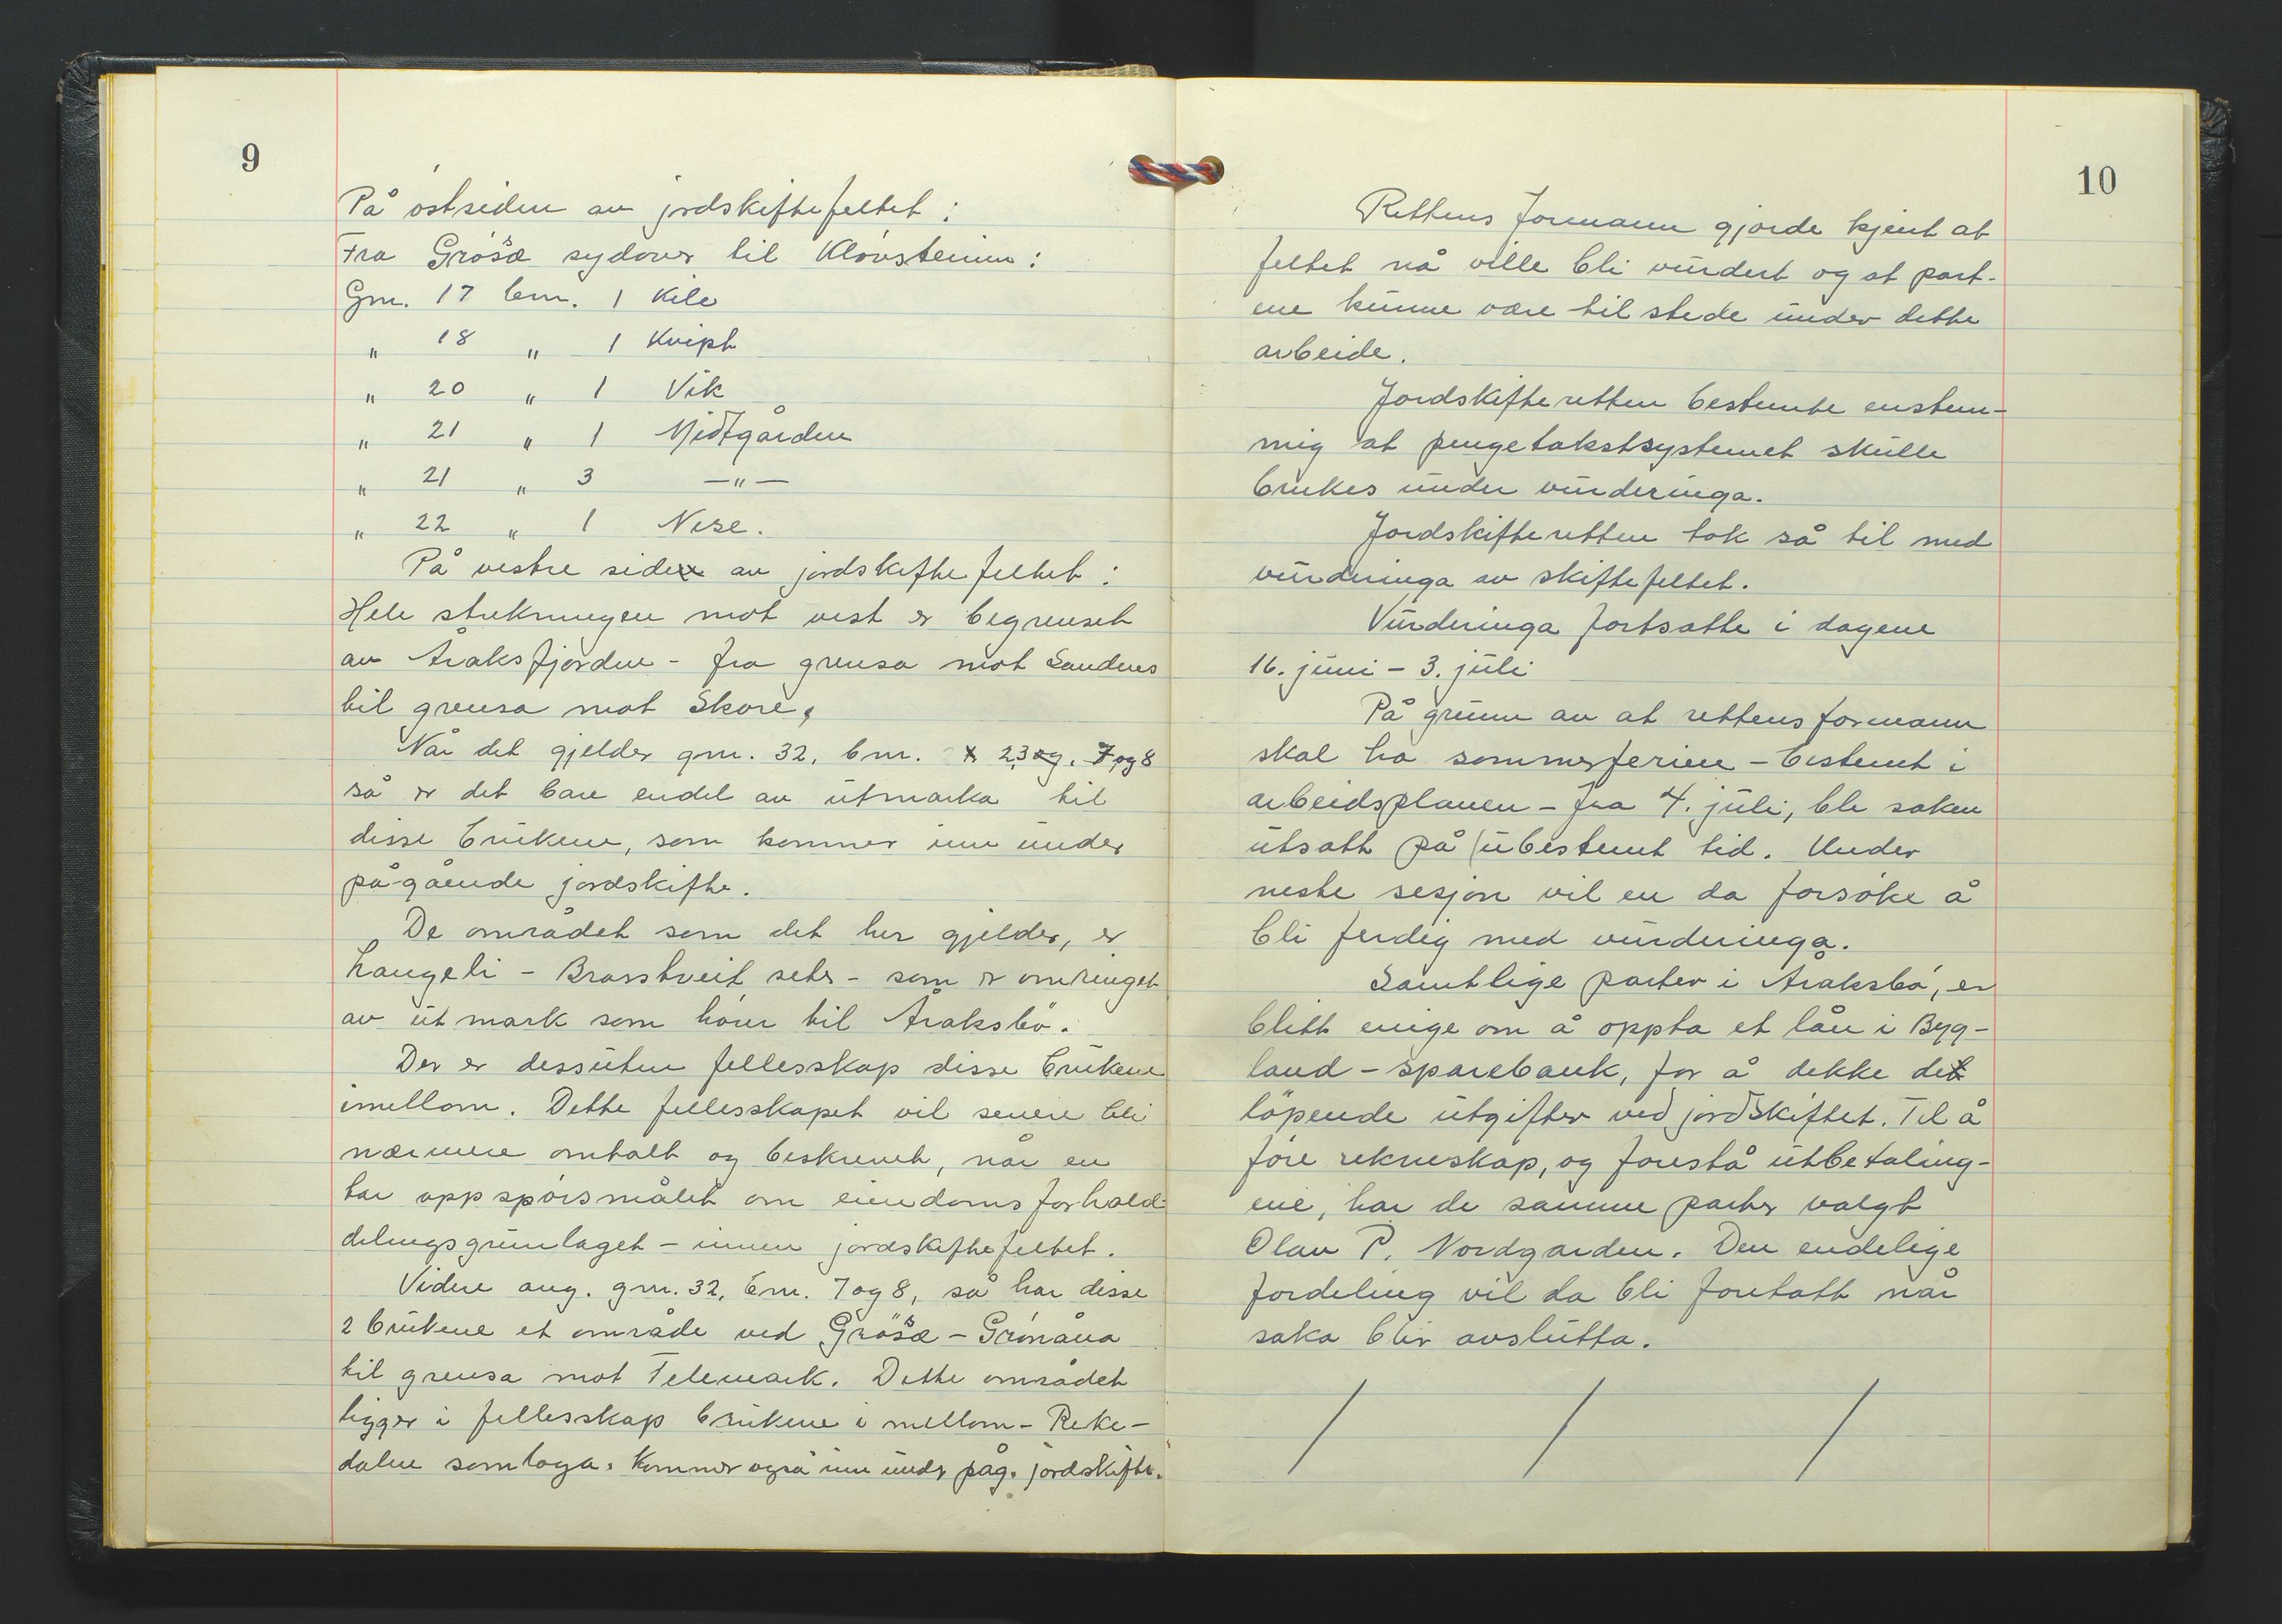 9
På östsiden av jordskiftefeltet :
Fra Grösæ sydover til Klövsteinen :
Gnr. 17 bnr. 1 Kile
" 18 " 1 Kvipt
" 20 " 1 Vik
" 21 " 1 Midtgården
" 21 " 3 — " —
" 22 " 1 Nese.
På vestre side av jordskiftefeltet :
Hele strekningen mot vest er begrenset
av Åraksfjorden - fra grensa mot Sandnes
til grensa mot Skore,
Når det gjelder gnr. 32, bnr. 2,3, 7 og 8
så er det bare endel av utmarka til
disse brukene, som kommer inn under
på-gående jordskifte.
De området som det her gjelder, er
Langeli - Brasstveit seter - som er omringet
av utmark som hörer til Åraksbö.
Der er dessuten fellesskap disse brukene
imellom. Dette fellesskapet vil senere bli
nærmere omtalt og beskrevet, når en
tar opp spörsmålet om eiendomsforhold-
delingsgrunlaget - innen jordskiftefeltet.
Videre ang. gnr. 32, bnr. 7 og 8, så har disse
2 brukene et område ved Grösæ - Grönåna
til grensa mot Telemark. Dette området
ligger i fellesskap brukene i mellom - Reke-
dalen som loga. Kommer også inn under påg. jordskifte.
10
Rettens formann gjorde kjent at
feltet nå ville bli vurdert og at part-
ene kunne være til stede under dette
arbeide.
Jordskifteretten bestemte enstem-
mig at pengetakstsystemet skulle
brukes under vurderinga.
Jordskifteretten tok så til med
vurderinga av skiftefeltet.
Vurderinga fortsatte i dagene
16. juni - 3. juli
På grunn av at rettens formann
skal ha sommerferien - bestemt i
arbeidsplanen - fra 4. juli, ble saken
utsatt på ubestemt tid. Under
neste sesjon vil en da forsöke å
bli ferdig med vurderinga.
Samtlige parter i Åraksbö, er
blitt enige om å oppta et lån i Byg-
land - sparebank, for å dekke de
löpende utgifter ved jordskiftet. Til å
före rekneskap, og forestå utbetaling-
ene, har de samme parter valgt
Olav P. Nordgarden. Den endelige
fordeling vil da bli foretatt når
saka blir avslutta.